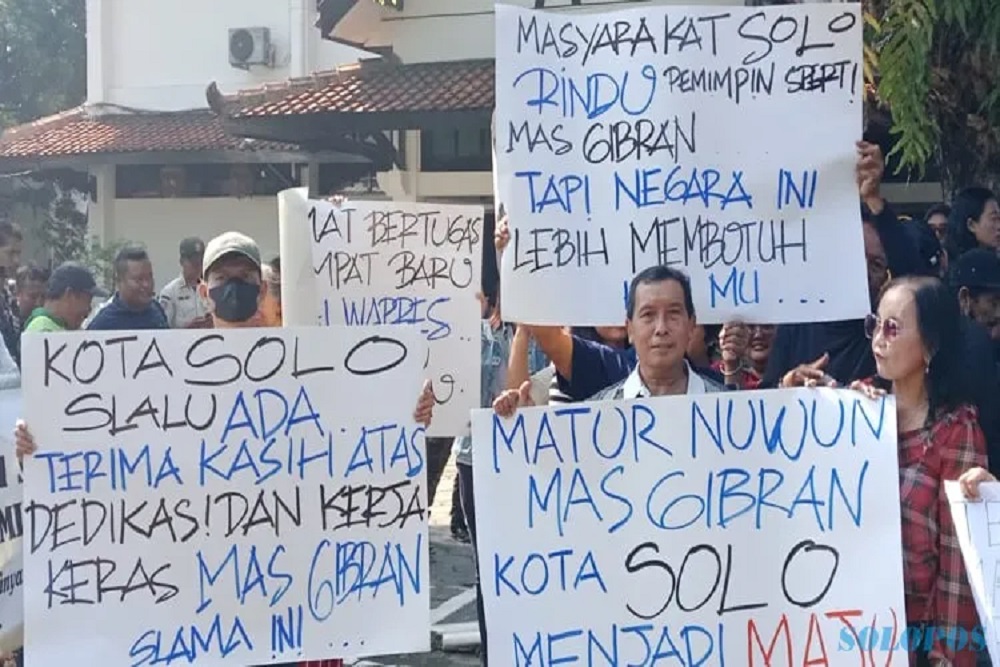 MASYARAKAT SOLO
RINDU PEMIMPIN SPERT!
MAS GIBRAN
TAPI NEGARA INI
LEBIH MEMBUTUH
MU...
BERTUGAS
BARU
WAPRES
KOTA SOLO
SLALU ADA.
TERIMA KASIH ATAS
DEDIKASI DAN KERJA
KERAS MAS GIBRAN
SLAMA INI...
MATUR NUWUN
MAS GIBRAN
KOTA SOLO
MENJADI
SOLOPOS